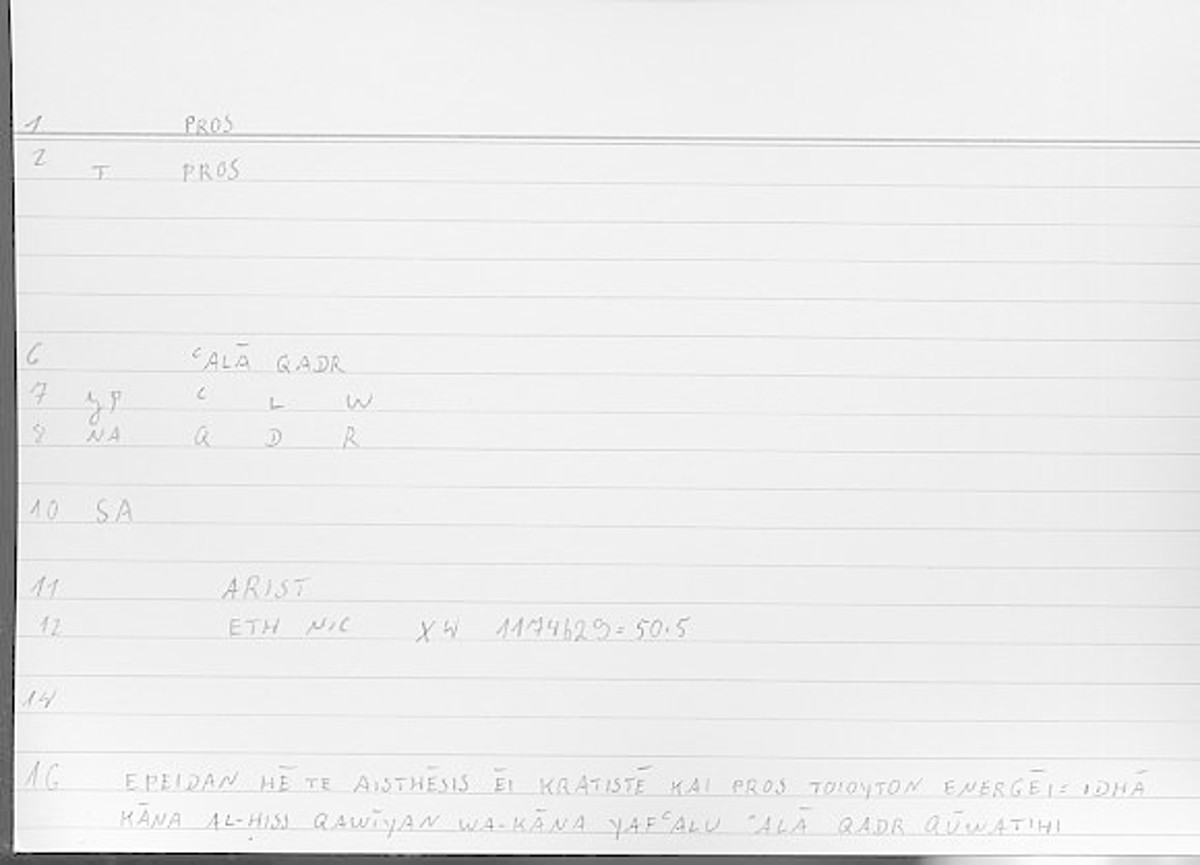 1 PROS
2 T PROS
6 ʿALĀ QADR
7 yp ʿ L W
8 NA Q D R
10 SA
11 ARIST
12 ETH NIC XW 1174b29=50.5
14
16 EPEIDAN HĒ TE AISTHĒSIS ĒI KRATISTĒ KAI PROS TOIOYTON ENERGĒI= IDHĀ
KĀNA AL-ḤISS QAWĪYAN WA-KĀNA YAFʿALU ʿALĀ QADR QŪWATIHI